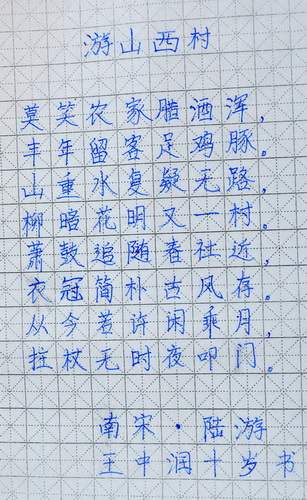 游山西村
莫笑农家腊酒浑，
丰年留客足鸡豚。
山重水复疑无路，
柳暗花明又一村。
萧鼓追随春社近，
衣冠简朴古风存。
从今若许闲乘月，
拄杖无时夜叩门。
南宋·陆游
王中润十岁书